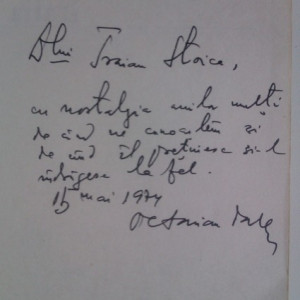 Dlui Traian Stoica,
cu nostalgia anilor mulți
de când ne cunoaștem și
de când îl prețuiesc și-l
îndrăgesc la fel.
15 mai 1974
Octavian